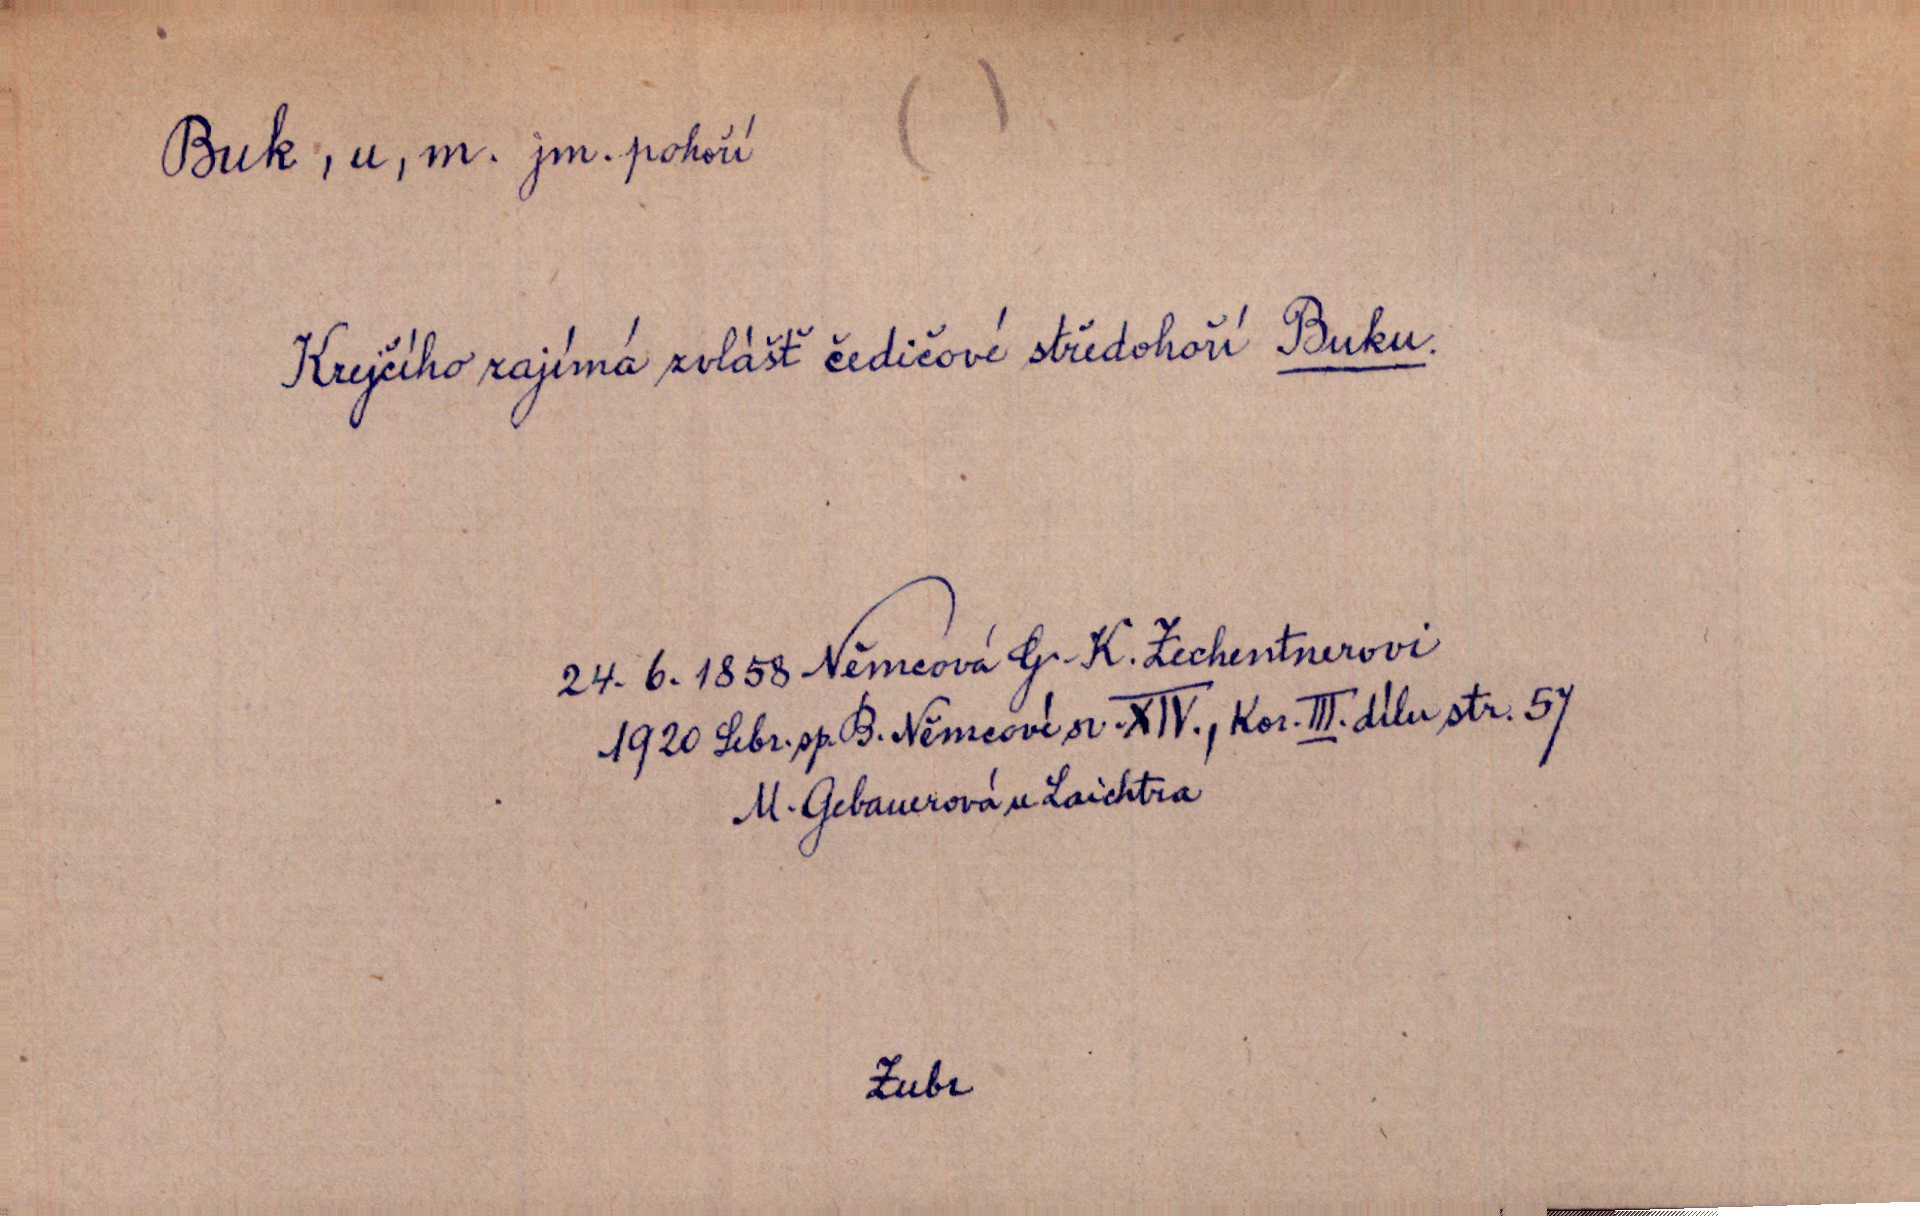 Buk, u, m. jm. pohoří
( )
Krejčího zajímá zvlášť čedičové středohoří Buku.
24. 6. 1858 Němcová G. K. Zechentnerovi
1920 Sebr. sp. B. Němcové sv. XIV., Kor. III. dílu str. 57
M. Gebauerová u Laichtra
Zubr